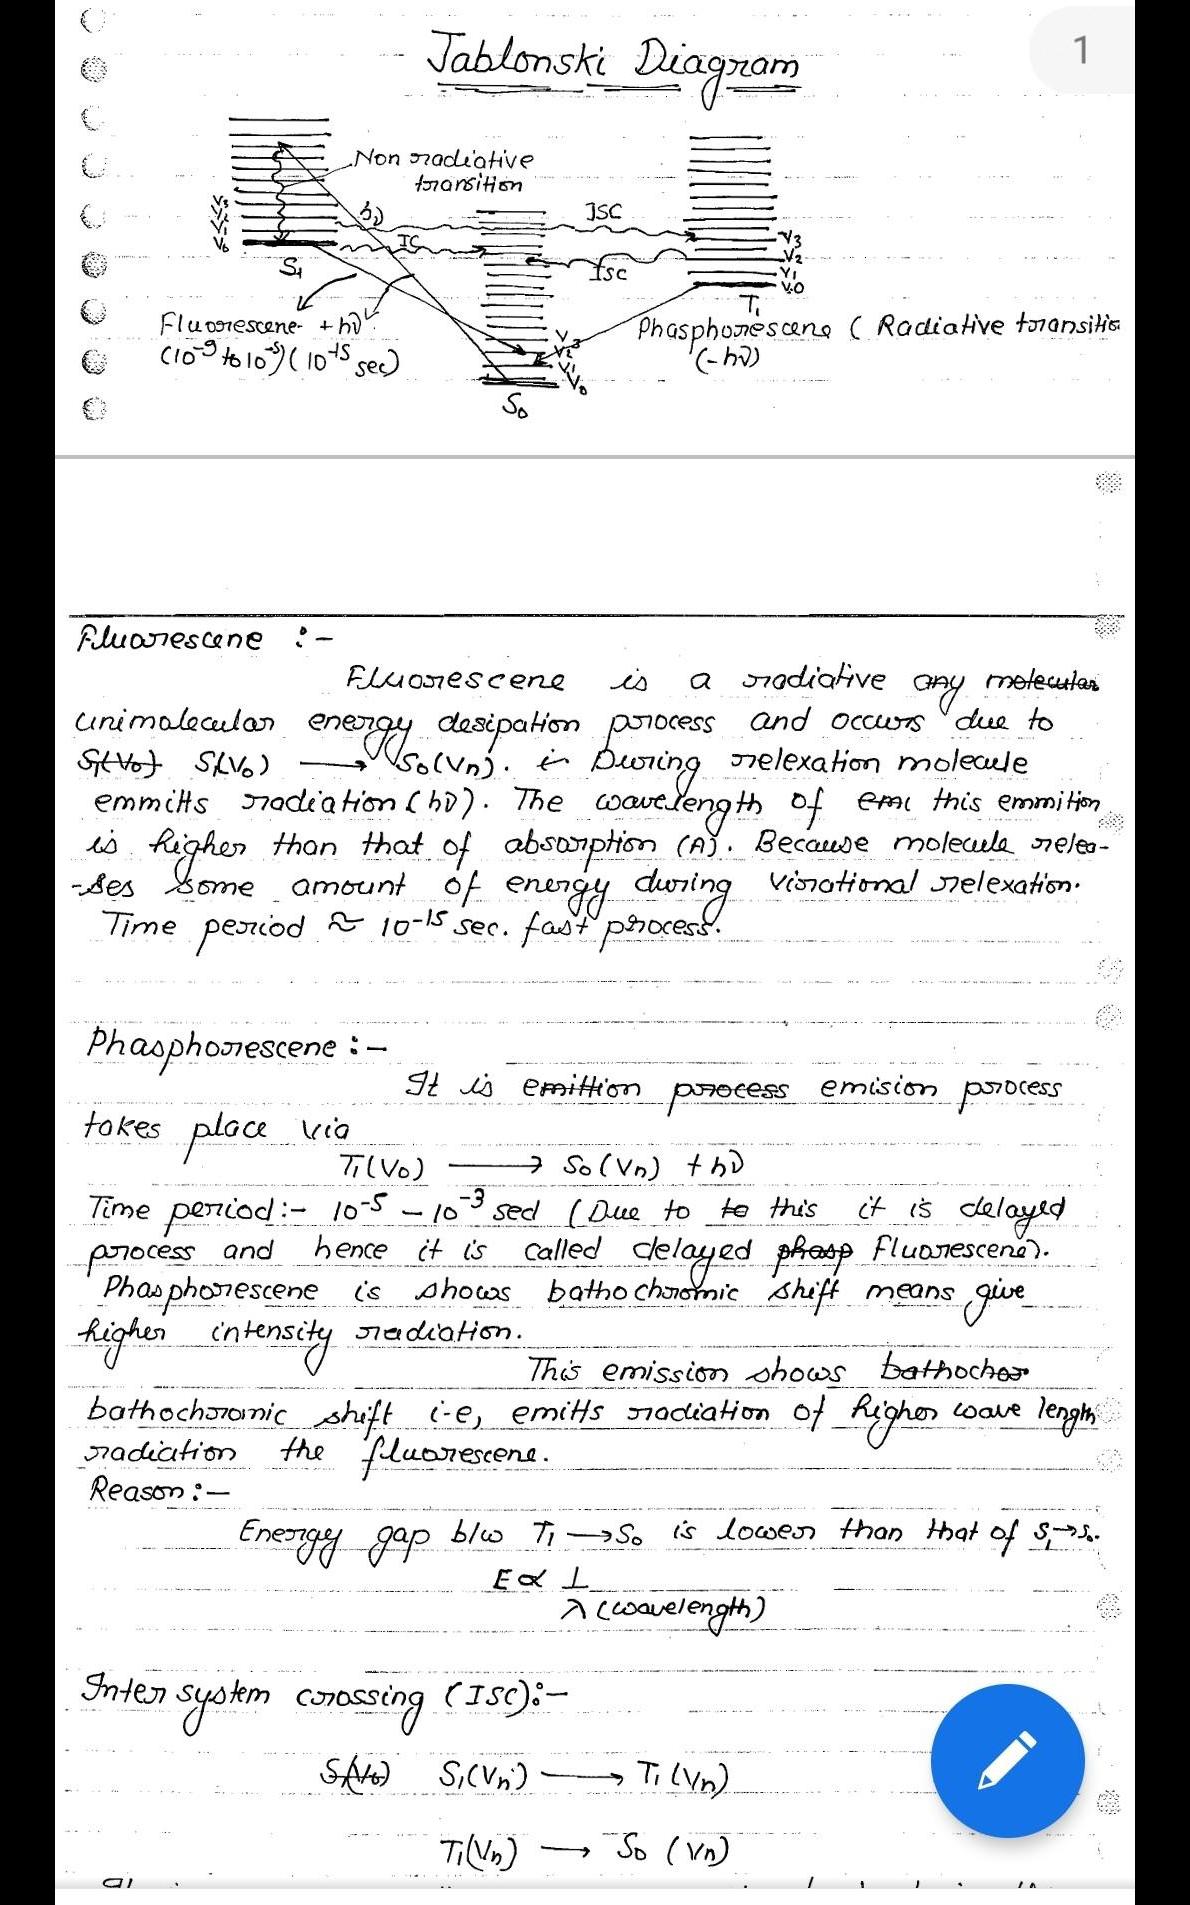 1
Jablonski Diagram
Non radiative
transition
V3
V2
V1
V0
hν
ISC
IC
ISC
V3
V2
V1
V0
S1
T1
Fluorescene +hν
(10-9 to 10-5) (10-15 sec)
Phasphorescene ( Radiative transitio
(-hν)
V3
V2
V1
V0
S0
Fluorescene :-
Fluorescene is a radiative any molecular
unimolecular energy desipation process and occurs due to
S1(V0) S1(V0) ⟶ S0(Vn). in During relexation molecule
emmitts radiation (hν). The wavelength of emi this emmition
is higher than that of absorption (A). Because molecule relea-
-ses some amount of energy during virational relexation.
Time period ≈ 10-15 sec. fast process.
Phasphorescene :-
It is emittion process emision process
takes place via
T1(V0) ⟶ S0(Vn) + hν
Time period :- 10-5 - 10-3 sed (Due to to this it is delayed
process and hence it is called delayed phosp fluorescene).
Phasphorescene is shows bathochromic shift means give
higher intensity radiation.
This emission shows bathochor
bathochromic shift i-e, emitts radiation of higher wave length
radiation the fluorescene.
Reason :-
Energy gap b/w T1 → S0 is lower than that of S1→S0.
E ∝ 1
λ (wavelength)
Inter system crossing (ISC):-
S1(V0) S1(Vn) ⟶ T1(Vn)
T1(Vn) ⟶ S0 (Vn)